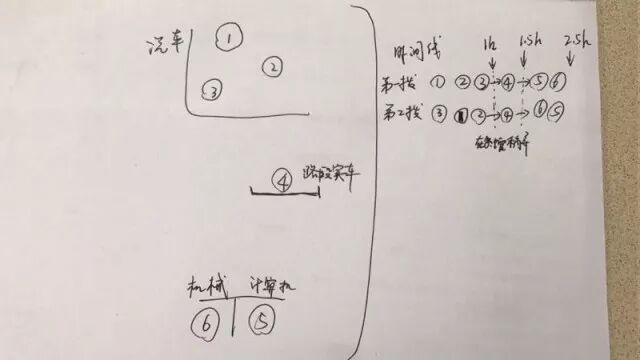 汽车
①
②
③
④
机械 计算机
⑥ ⑤
时间线 1h 1.5h 2.5h
第一拨 ① ② ③ → ④ → ⑤ ⑥
第2拨 ③ ① ② → ④ → ⑥ ⑤